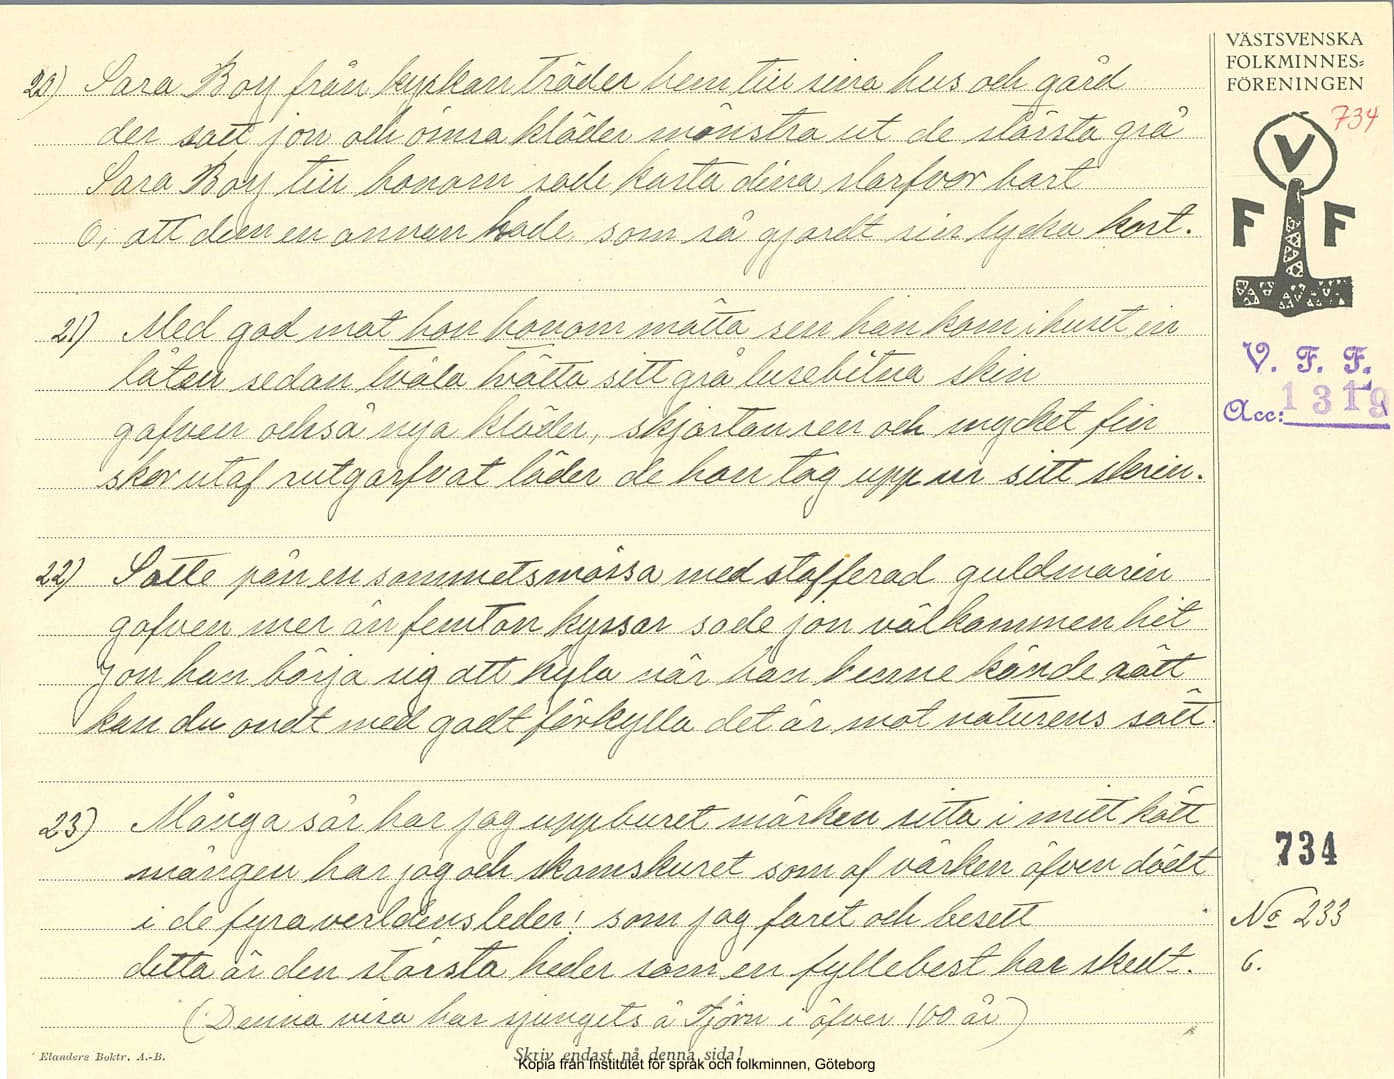 20) Sara Boy från kyrkan träder hem till sina hus och gård
der satt jon och ömsa kläder mönstra ut de största grå
Sara Boy till honom sade kasta dina slarfvor bort
O, att dem en annan hade, som så gjordt sin lycka kort.
21) Med god mat hon honom mätta sen han kom i huset in
låten sedan tvåla tvätta sitt grå lusebitna skin
gafven också nya kläder, skjortan ren och mycket fin
skor utaf rutgarfvat läder de hon tag upp ur sitt skrin.
22) Satte pån en sammetsmössa med stafferad guldmarin
gafven mer än femton kyssar sade jon välkommen hit
Jon han börja sig att hyla när han henne kände rätt
kan du ondt med godt förkylla det är mot naturens sätt.
23) Många sår har jag uppburet märken sitta i mitt kött
mången har jag och skamskuret som af värken äfven dödt
i de fyra verldens leder! som jag faret och besett
detta är den största heder som en fyllebest har skett.
(Denna visa har sjungets å Tjörn i öfver 100 år)
Elanders Boktr. A.-B.
Skriv endast på denna sida!
Kopia från Institutet för språk och folkminnen, Göteborg
VÄSTSVENSKA
FOLKMINNES-
FÖRENINGEN
734
V
F F
V. F. F.
Acc: 1319
734
No 233
6.